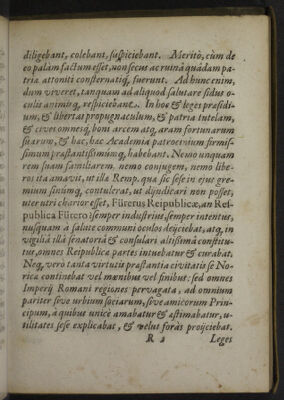 diligebant, colebant, suspiciebant. Meritò, cùm de
eo palàm factum esset, non secus ac ruinâ quâdam pa-
triæ attoniti consternatiq́; fuerunt. Ad hunc enim,
dum viveret, tanquam ad aliquod salutare sidus o-
culis animisq́; respiciebant. In hoc & leges præsidi-
um, & libertas propugnaculum, & patria tutelam,
& cives omnesq́; boni arcem atq; aram fortunarum
suarum, & hæc, hæc Academia patrocinium firmis-
simum præstantissimumq́; habebant. Nemo unquam
rem suam familiarem, nemo conjugem, nemo libe-
ros ita amavit, ut illa Remp. qua sic sese in ejus gre-
mium sinumq́; contulerat, ut dijudicari non posset,
uter utri charior esset, Fürerus Reipublicæ, an Res-
publica Fürero: semper industrius, semper intentus,
nusquam à salute communi oculos dejiciebat, atq; in
vigiliâ illâ senatoriâ & consulari altissimâ constitu-
tus, omnes Reipublicæ partes intuebatur & curabat.
Neq; verò tanta virtutis præstantia civitatis se No-
ricæ continebat vel mœnibus vel finibus: sed omnes
Imperij Romani regiones pervagata, ad omnium
pariter sive urbium sociarum, sive amicorum Prin-
cipum, à quibus unicè amabatur & æstimabatur, u-
tilitates sese explicabat, & velut foràs projiciebat.
R 2 Leges